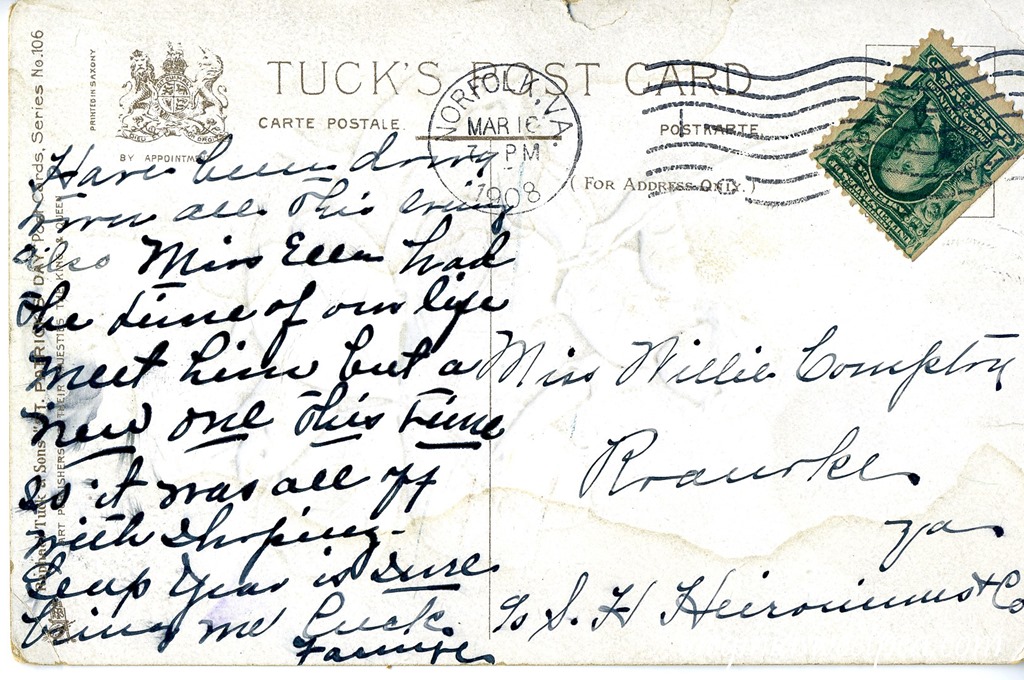 TUCK'S POST CARD
CARTE POSTALE
POSTKARTE
BY APPOINTMENT
(FOR ADDRESS ONLY.)
PRINTED IN SAXONY
NORFOLK, VA.
MAR 16
7 PM
1908
Raphael Tuck & Sons' "ST. PATRICK'S DAY" Post Cards, Series No. 106
ART PUBLISHERS THEIR MAJESTIES THE KING & QUEEN
Have been
town all this
also Miss Ellen had
the time of our life
meet him but a
new one this time
so it was all off
with shoping-
Leap year is sure
bring me luck
Miss Willie Compton
Roanoke
Va
c/o S. H. Heironimus & Co